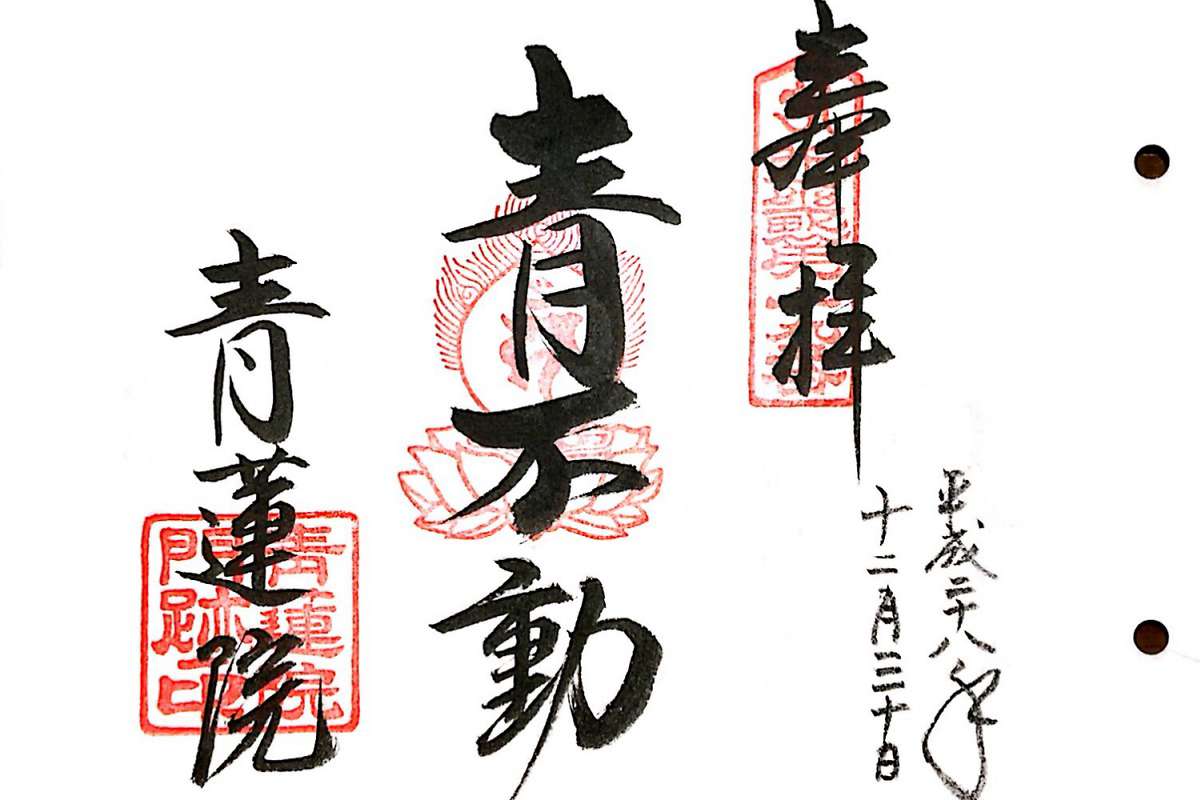 奉拝
平成二十八年
十二月三十日
青不動
青蓮院
青蓮院
門跡印